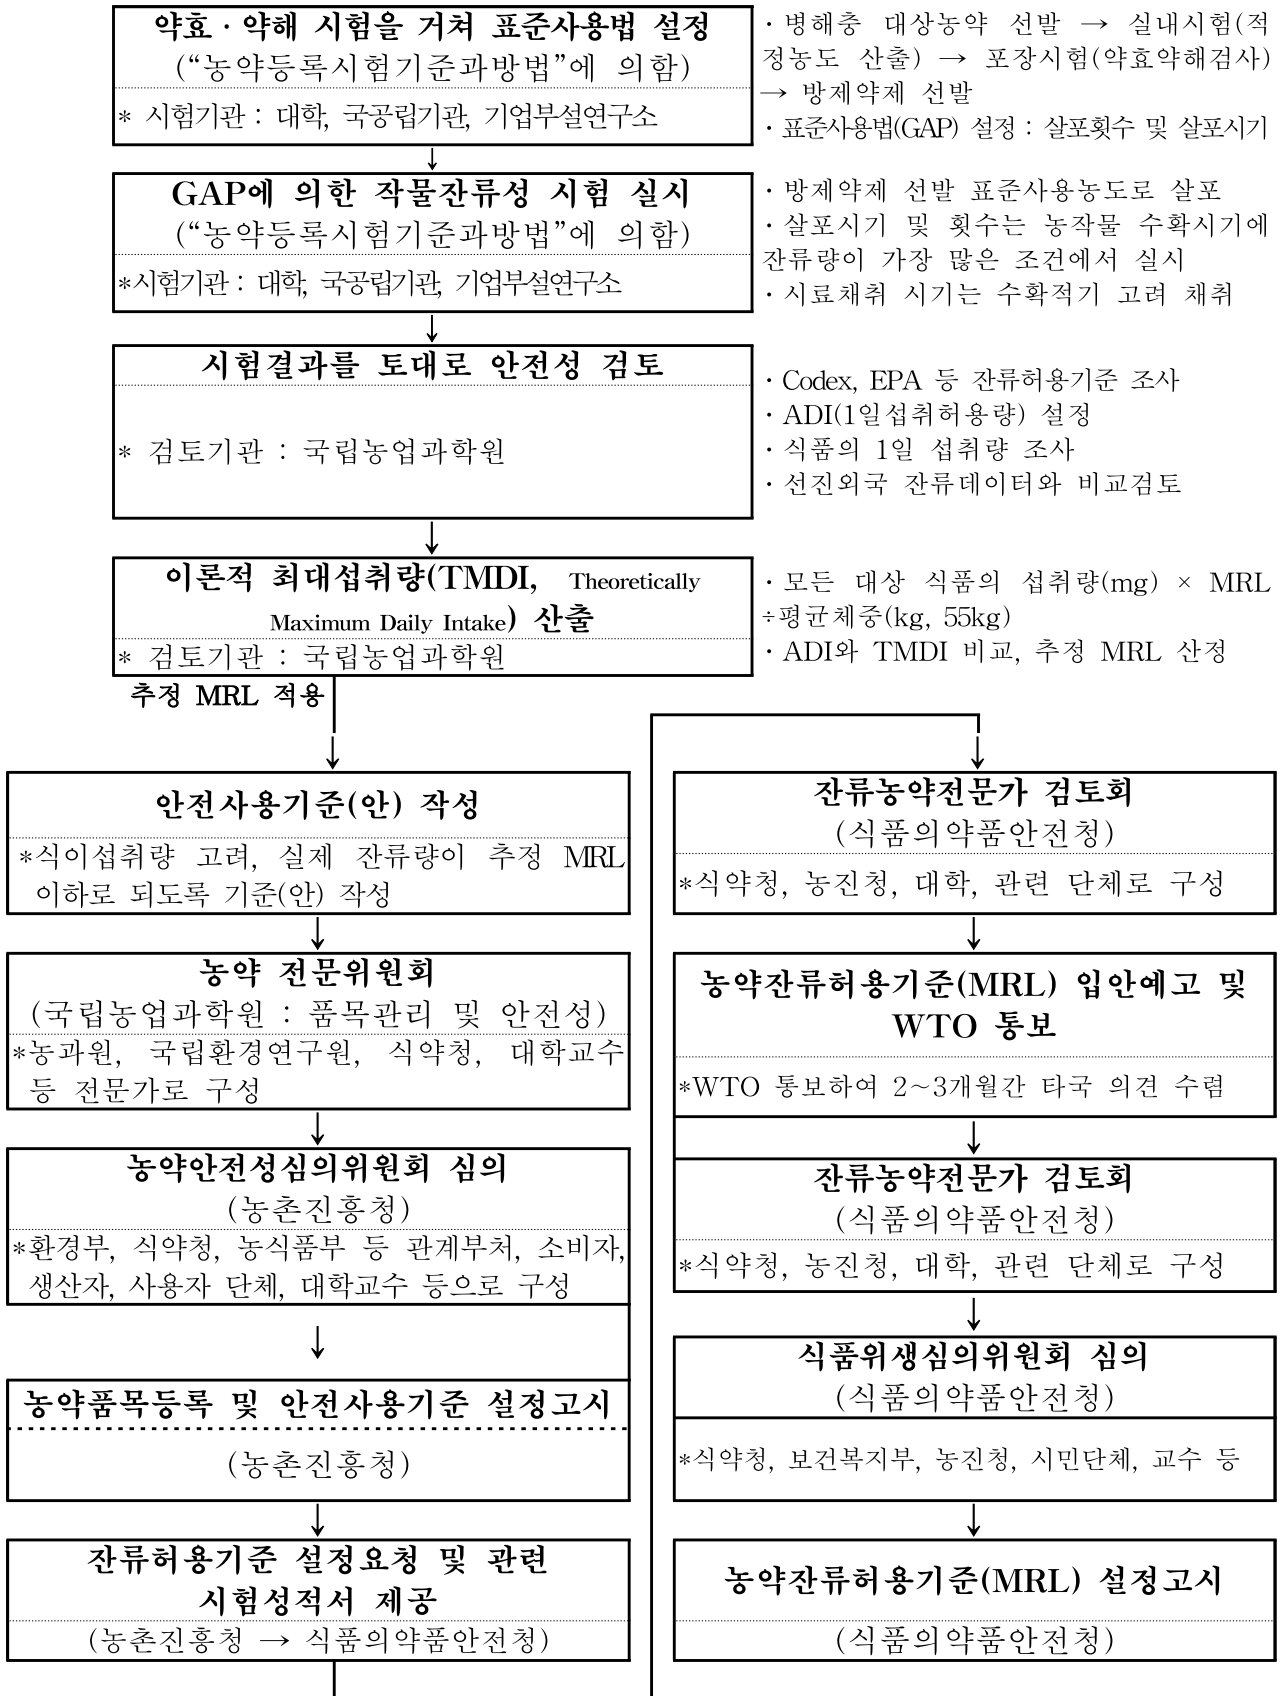 약효·약해 시험을 거쳐 표준사용법 설정
(“농약등록시험기준과방법”에 의함)
* 시험기관 : 대학, 국공립기관, 기업부설연구소
· 병해충 대상농약 선발 → 실내시험(적
정농도 산출) → 포장시험(약효약해검사)
→ 방제약제 선발
· 표준사용법(GAP) 설정 : 살포횟수 및 살포시기
GAP에 의한 작물잔류성 시험 실시
(“농약등록시험기준과방법”에 의함)
*시험기관 : 대학, 국공립기관, 기업부설연구소
· 방제약제 선발 표준사용농도로 살포
· 살포시기 및 횟수는 농작물 수확시기에
잔류량이 가장 많은 조건에서 실시
· 시료채취 시기는 수확적기 고려 채취
시험결과를 토대로 안전성 검토
* 검토기관 : 국립농업과학원
· Codex, EPA 등 잔류허용기준 조사
· ADI(1일섭취허용량) 설정
· 식품의 1일 섭취량 조사
· 선진외국 잔류데이터와 비교검토
이론적 최대섭취량(TMDI, Theoretically
Maximum Daily Intake) 산출
* 검토기관 : 국립농업과학원
· 모든 대상 식품의 섭취량(mg) × MRL
÷평균체중(kg, 55kg)
· ADI와 TMDI 비교, 추정 MRL 산정
추정 MRL 적용
안전사용기준(안) 작성
*식이섭취량 고려, 실제 잔류량이 추정 MRL
이하로 되도록 기준(안) 작성
농약 전문위원회
(국립농업과학원 : 품목관리 및 안전성)
*농과원, 국립환경연구원, 식약청, 대학교수
등 전문가로 구성
농약안전성심의위원회 심의
(농촌진흥청)
*환경부, 식약청, 농식품부 등 관계부처, 소비자,
생산자, 사용자 단체, 대학교수 등으로 구성
농약품목등록 및 안전사용기준 설정고시
(농촌진흥청)
잔류허용기준 설정요청 및 관련
시험성적서 제공
(농촌진흥청 → 식품의약품안전청)
잔류농약전문가 검토회
(식품의약품안전청)
*식약청, 농진청, 대학, 관련 단체로 구성
농약잔류허용기준(MRL) 입안예고 및
WTO 통보
*WTO 통보하여 2~3개월간 타국 의견 수렴
잔류농약전문가 검토회
(식품의약품안전청)
*식약청, 농진청, 대학, 관련 단체로 구성
식품위생심의위원회 심의
(식품의약품안전청)
*식약청, 보건복지부, 농진청, 시민단체, 교수 등
농약잔류허용기준(MRL) 설정고시
(식품의약품안전청)